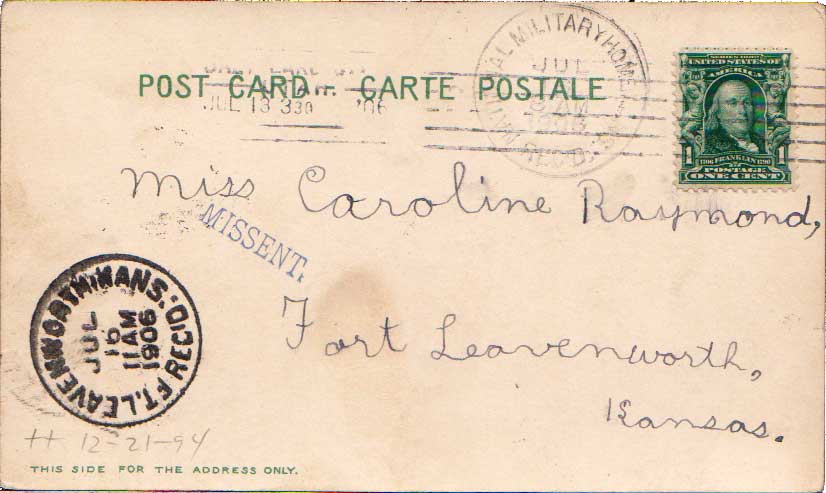 NATIONAL MILITARY HOME, KANS.
JUL
AM
1906
REC'D.
SALT LAKE CITY
JUL 13 330 '06
POST CARD - CARTE POSTALE
SERIES 1902
UNITED STATES OF
AMERICA
1706 FRANKLIN 1790
1 1
POSTAGE
ONE CENT
Miss Caroline Raymond,
MISSENT.
Fort Leavenworth,
Kansas.
FT. LEAVENWORTH, KANS. REC'D
JUL
16
11 AM
1906
H 12-21-94
THIS SIDE FOR THE ADDRESS ONLY.